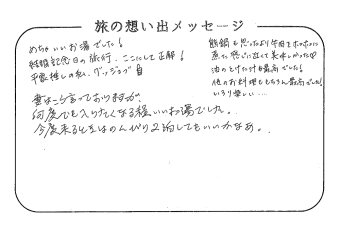 旅の想い出メッセージ
めちゃいいお湯でした!
結婚記念日の旅行、ここにして正解!
平日推しの私、グッジョブ
妻は言っておりますが、
何度でも入りたくなる程いいお湯でした。
今度来るときはのんびり2泊してもいいかなぁ。
熊鍋も思ったより牛肉をホホホに
煮た感じに近くて美味しかった♡
油のとけた汁が最高でした!
他のお料理ももちろん最高でした!
いろり楽しい…